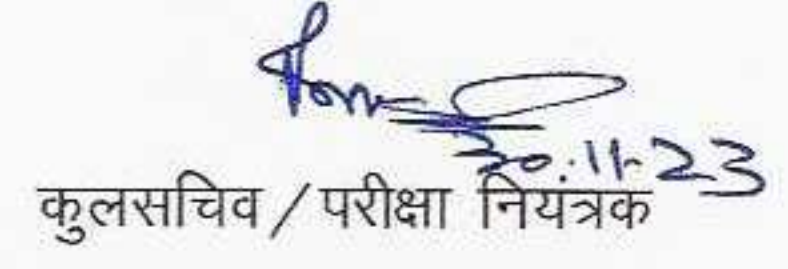 30.11.23
कुलसचिव / परीक्षा नियंत्रक